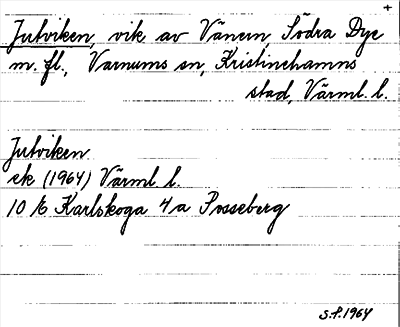 +
Jutviken, vik av Vänern, Södra Dye
m. fl., Varnums sn, Kristinehamns
stad, Värml. l.
Jutviken
ek (1964) Värml. l.
10 E Karlskoga 4a Posseberg
S.P. 1964